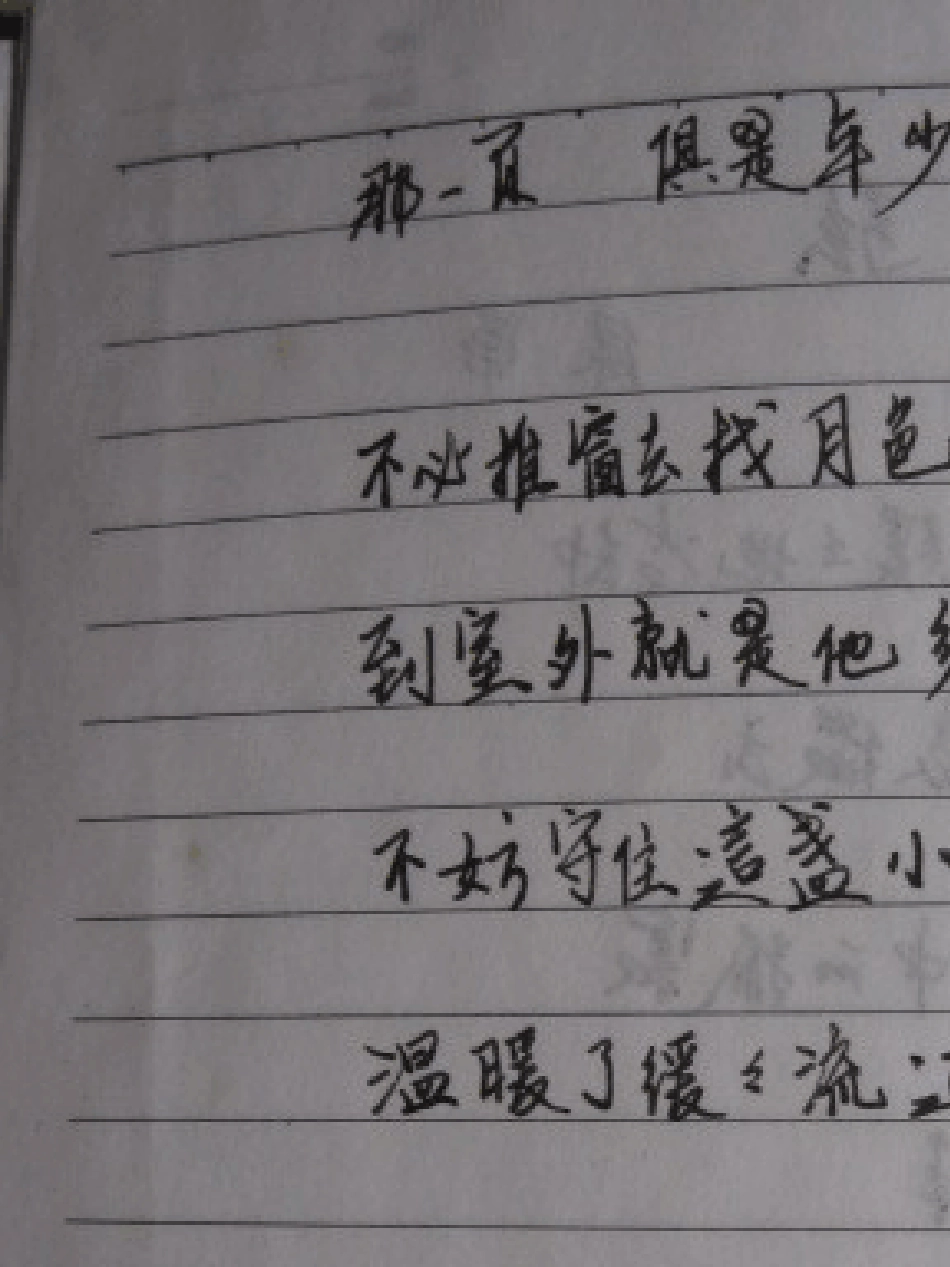 那一頁 俱是年少
不必推窗去找月色
到室外就是他
不妨守住這盞小
温暖了緩々流